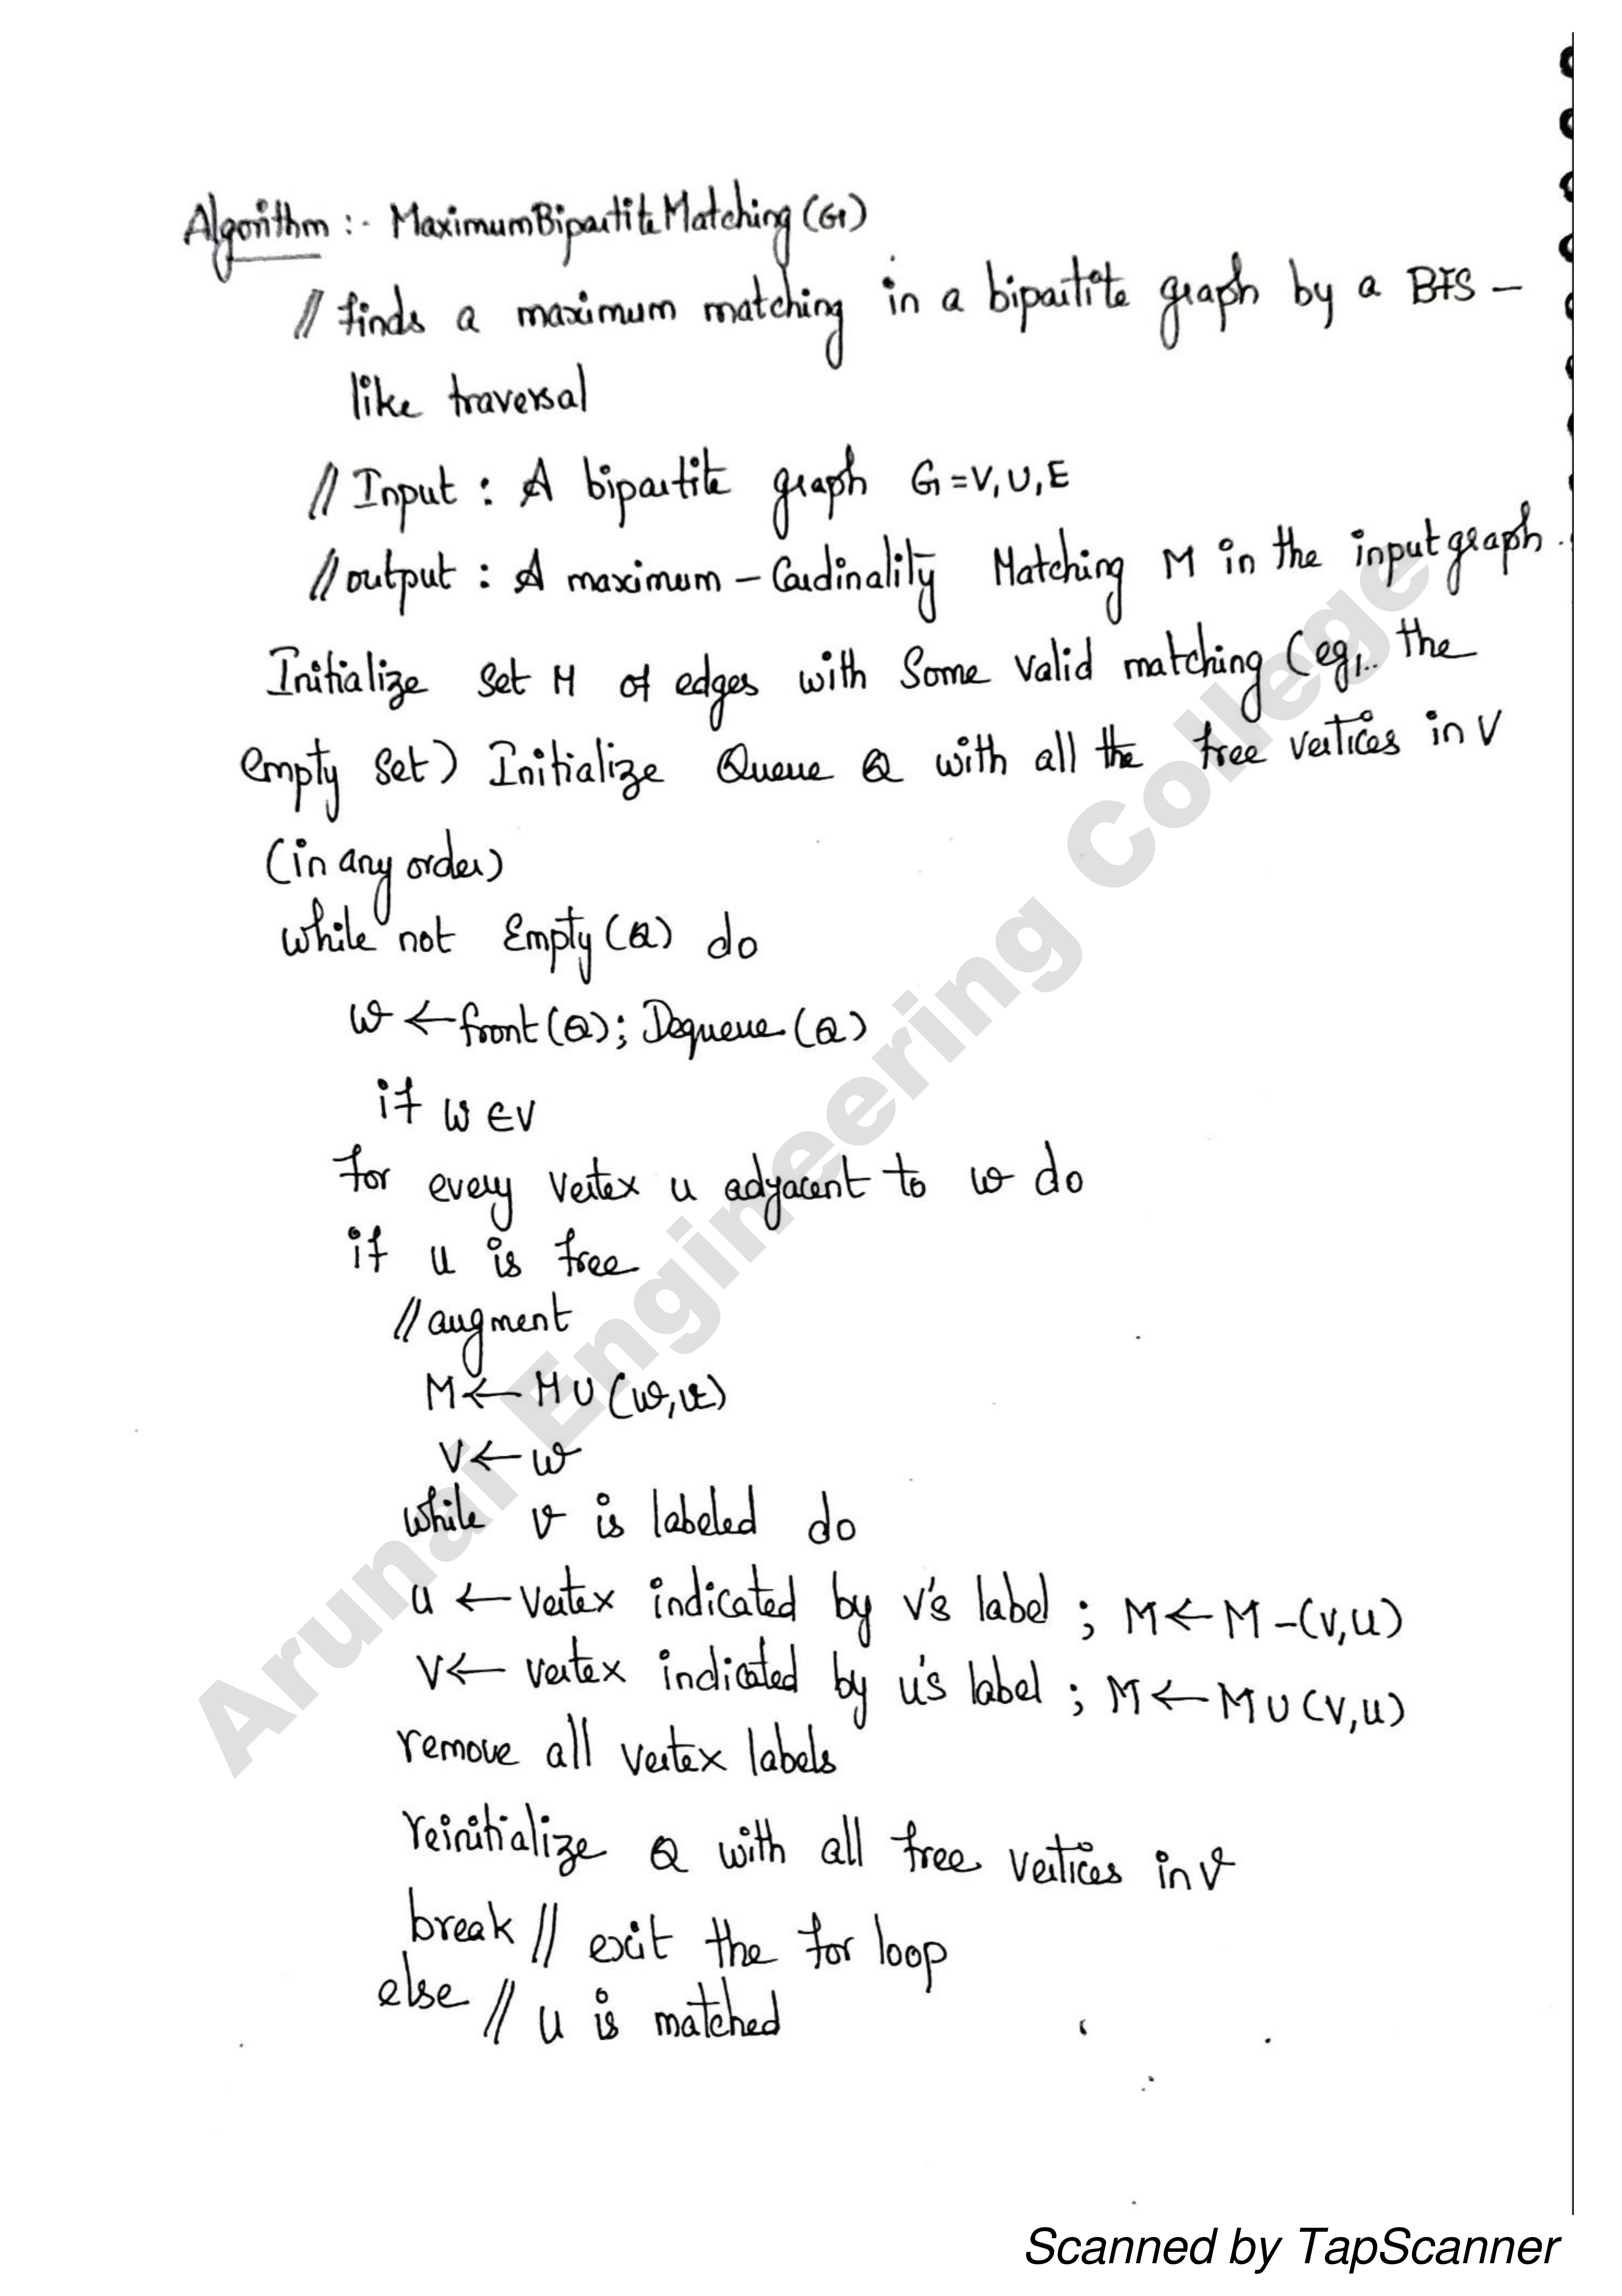 Algorithm :- MaximumBipartiteMatching (G)
// finds a maximum matching in a bipartite graph by a BFS -
like traversal
// Input : A bipartite graph G = V, U, E
// output : A maximum - Cardinality Matching M in the input graph.
Initialize Set M of edges with Some valid matching (eg,.. the
empty set) Initialize Queue Q with all the free vertices in V
(in any order)
while not Empty (Q) do
w ← front (Q); Dequeue (Q)
if w ∈ V
for every vertex u adjacent to w do
if u is free
// augment
M ← M U (w, u)
V ← w
while v is labeled do
u ← vertex indicated by v's label ; M ← M - (V, U)
V ← vertex indicated by u's label ; M ← M U (V, U)
remove all vertex labels
reinitialize Q with all free vertices in V
break // exit the for loop
else // U is matched
Arunai Engineering College
Scanned by TapScanner